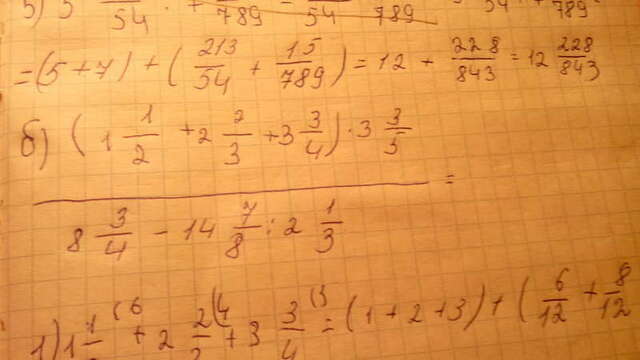 5) 5 /54 · + /789 = /54 /789 54 · 789
= (5 + 7) + (213/54 + 15/789) = 12 + 228/843 = 12 228/843
б) (1 1/2 + 2 2/3 + 3 3/4) · 3 3/5
=
8 3/4 - 14 7/8 : 2 1/3
1) 1 1/ (6 + 2 2/ (4 + 3 3/4 (3 = (1 + 2 + 3) + (6/12 + 8/12